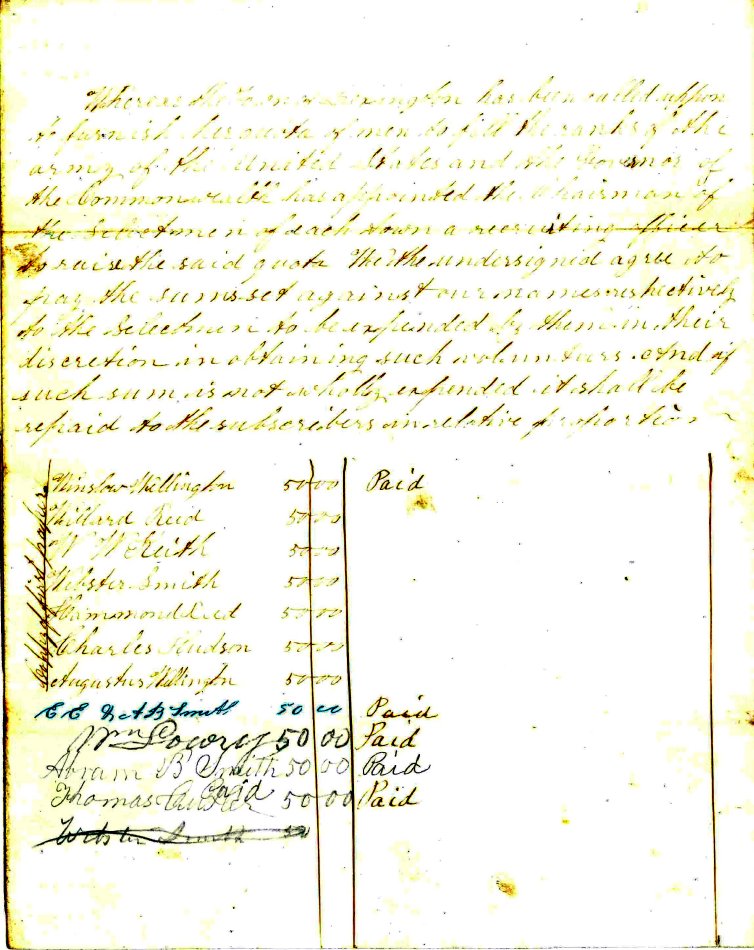 Whereas the Town of Lexington has been called uppon
to furnish her quota of men to fill the ranks of the
army of the United States and the Governor of
the Commonwealth has appointed the Chairman of
the Selectmen of each town a recruiting officer
to raise the said quota We the undersigned agree to
pay the sums set against our names respectively
to the Selectmen to be expended by them in their
discretion in obtaining such volunteers. And if
such sum is not wholly expended it shall be
repaid to the subscribers in relative proportion
Copy of first paper
Winslow Wellington 50 00 Paid
Willard Reid 50 00
W W Keith 50 00
Webster Smith 50 00
Hammond Reed 50 00
Charles Hudson 50 00
Augustus Wellington 50 00
E E & A B Smith 50 00 Paid
Wm Lowry 50 00 Paid
Abram B Smith 50 00 Paid
Thomas Paid 50 00 Paid
Webster Smith 50